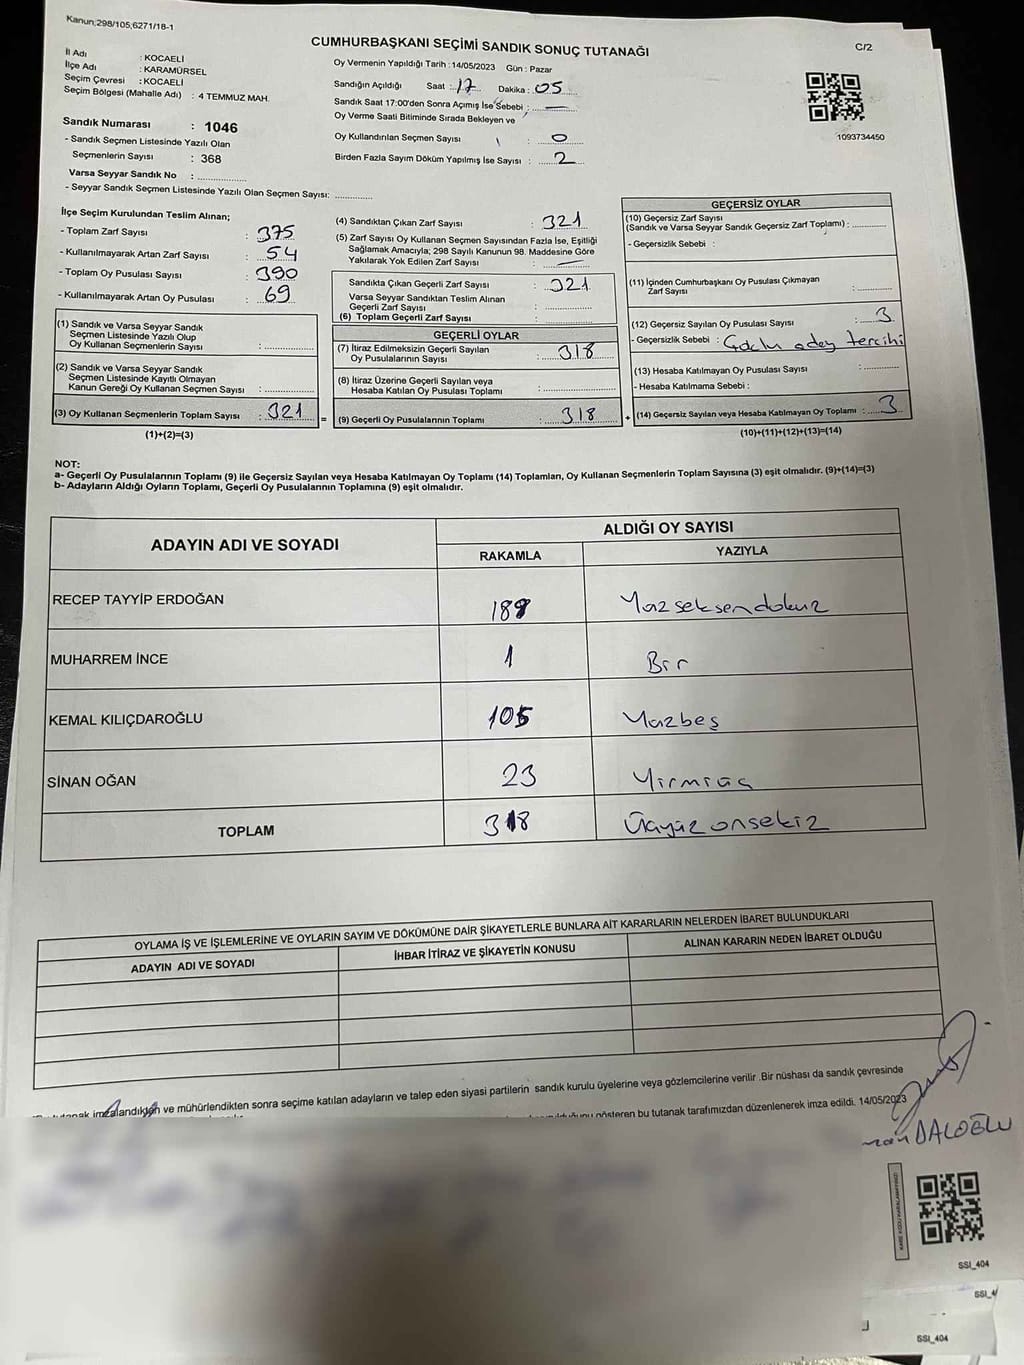 Kanun;298/105,6271/18-1
CUMHURBAŞKANI SEÇİMİ SANDIK SONUÇ TUTANAĞI
C/2
İl Adı : KOCAELİ
İlçe Adı : KARAMÜRSEL
Seçim Çevresi : KOCAELİ
Seçim Bölgesi (Mahalle Adı) : 4 TEMMUZ MAH.
Sandık Numarası : 1046
- Sandık Seçmen Listesinde Yazılı Olan
Seçmenlerin Sayısı : 368
Varsa Seyyar Sandık No :
- Seyyar Sandık Seçmen Listesinde Yazılı Olan Seçmen Sayısı:
Oy Vermenin Yapıldığı Tarih : 14/05/2023 Gün : Pazar
Sandığın Açıldığı Saat : 17 Dakika : 05
Sandık Saat 17:00'den Sonra Açımış İse Sebebi : —
Oy Verme Saati Bitiminde Sırada Bekleyen ve
Oy Kullandırılan Seçmen Sayısı : 0
Birden Fazla Sayım Döküm Yapılmış İse Sayısı : 2
1093734450
İlçe Seçim Kurulundan Teslim Alınan;
- Toplam Zarf Sayısı : 375
- Kullanılmayarak Artan Zarf Sayısı : 54
- Toplam Oy Pusulası Sayısı : 390
- Kullanılmayarak Artan Oy Pusulası : 69
(1) Sandık ve Varsa Seyyar Sandık
Seçmen Listesinde Yazılı Olup
Oy Kullanan Seçmenlerin Sayısı :
(2) Sandık ve Varsa Seyyar Sandık
Seçmen Listesinde Kayıtlı Olmayan
Kanun Gereği Oy Kullanan Seçmen Sayısı :
(3) Oy Kullanan Seçmenlerin Toplam Sayısı : 321 =
(1)+(2)=(3)
(4) Sandıktan Çıkan Zarf Sayısı : 321
(5) Zarf Sayısı Oy Kullanan Seçmen Sayısından Fazla İse, Eşitliği
Sağlamak Amacıyla; 298 Sayılı Kanunun 98. Maddesine Göre
Yakılarak Yok Edilen Zarf Sayısı : —
Sandıkta Çıkan Geçerli Zarf Sayısı : 321
Varsa Seyyar Sandıktan Teslim Alınan
Geçerli Zarf Sayısı :
(6) Toplam Geçerli Zarf Sayısı :
GEÇERLİ OYLAR
(7) İtiraz Edilmeksizin Geçerli Sayılan
Oy Pusulalarının Sayısı : 318
(8) İtiraz Üzerine Geçerli Sayılan veya
Hesaba Katılan Oy Pusulası Toplamı :
(9) Geçerli Oy Pusulalarının Toplamı : 318 +
GEÇERSİZ OYLAR
(10) Geçersiz Zarf Sayısı
(Sandık ve Varsa Seyyar Sandık Geçersiz Zarf Toplamı) :
- Geçersizlik Sebebi :
(11) İçinden Cumhurbaşkanı Oy Pusulası Çıkmayan
Zarf Sayısı :
(12) Geçersiz Sayılan Oy Pusulası Sayısı : 3
- Geçersizlik Sebebi : Çoklu aday tercihi
(13) Hesaba Katılmayan Oy Pusulası Sayısı :
- Hesaba Katılmama Sebebi :
(14) Geçersiz Sayılan veya Hesaba Katılmayan Oy Toplamı : 3
(10)+(11)+(12)+(13)=(14)
NOT:
a- Geçerli Oy Pusulalarının Toplamı (9) ile Geçersiz Sayılan veya Hesaba Katılmayan Oy Toplamı (14) Toplamları, Oy Kullanan Seçmenlerin Toplam Sayısına (3) eşit olmalıdır. (9)+(14)=(3)
b- Adayların Aldığı Oyların Toplamı, Geçerli Oy Pusulalarının Toplamına (9) eşit olmalıdır.
ADAYIN ADI VE SOYADI
ALDIĞI OY SAYISI
RAKAMLA YAZIYLA
RECEP TAYYİP ERDOĞAN 189 Yüzseksendokuz
MUHARREM İNCE 1 Bir
KEMAL KILIÇDAROĞLU 105 Yüzbeş
SİNAN OĞAN 23 Yirmiüç
TOPLAM 318 Üçyüzonsekiz
OYLAMA İŞ VE İŞLEMLERİNE VE OYLARIN SAYIM VE DÖKÜMÜNE DAİR ŞİKAYETLERLE BUNLARA AİT KARARLARIN NELERDEN İBARET BULUNDUKLARI
ADAYIN ADI VE SOYADI İHBAR İTİRAZ VE ŞİKAYETİN KONUSU ALINAN KARARIN NEDEN İBARET OLDUĞU
tutanak imzalandıktan ve mühürlendikten sonra seçime katılan adayların ve talep eden siyasi partilerin sandık kurulu üyelerine veya gözlemcilerine verilir .Bir nüshası da sandık çevresinde
gösteren bu tutanak tarafımızdan düzenlenerek imza edildi. 14/05/2023
DALOĞLU
SSI_404
SSI_4
SSI_404